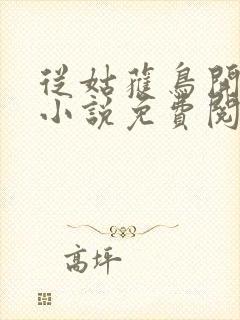 從姑蓷鳥開
小說免費閱
高坪